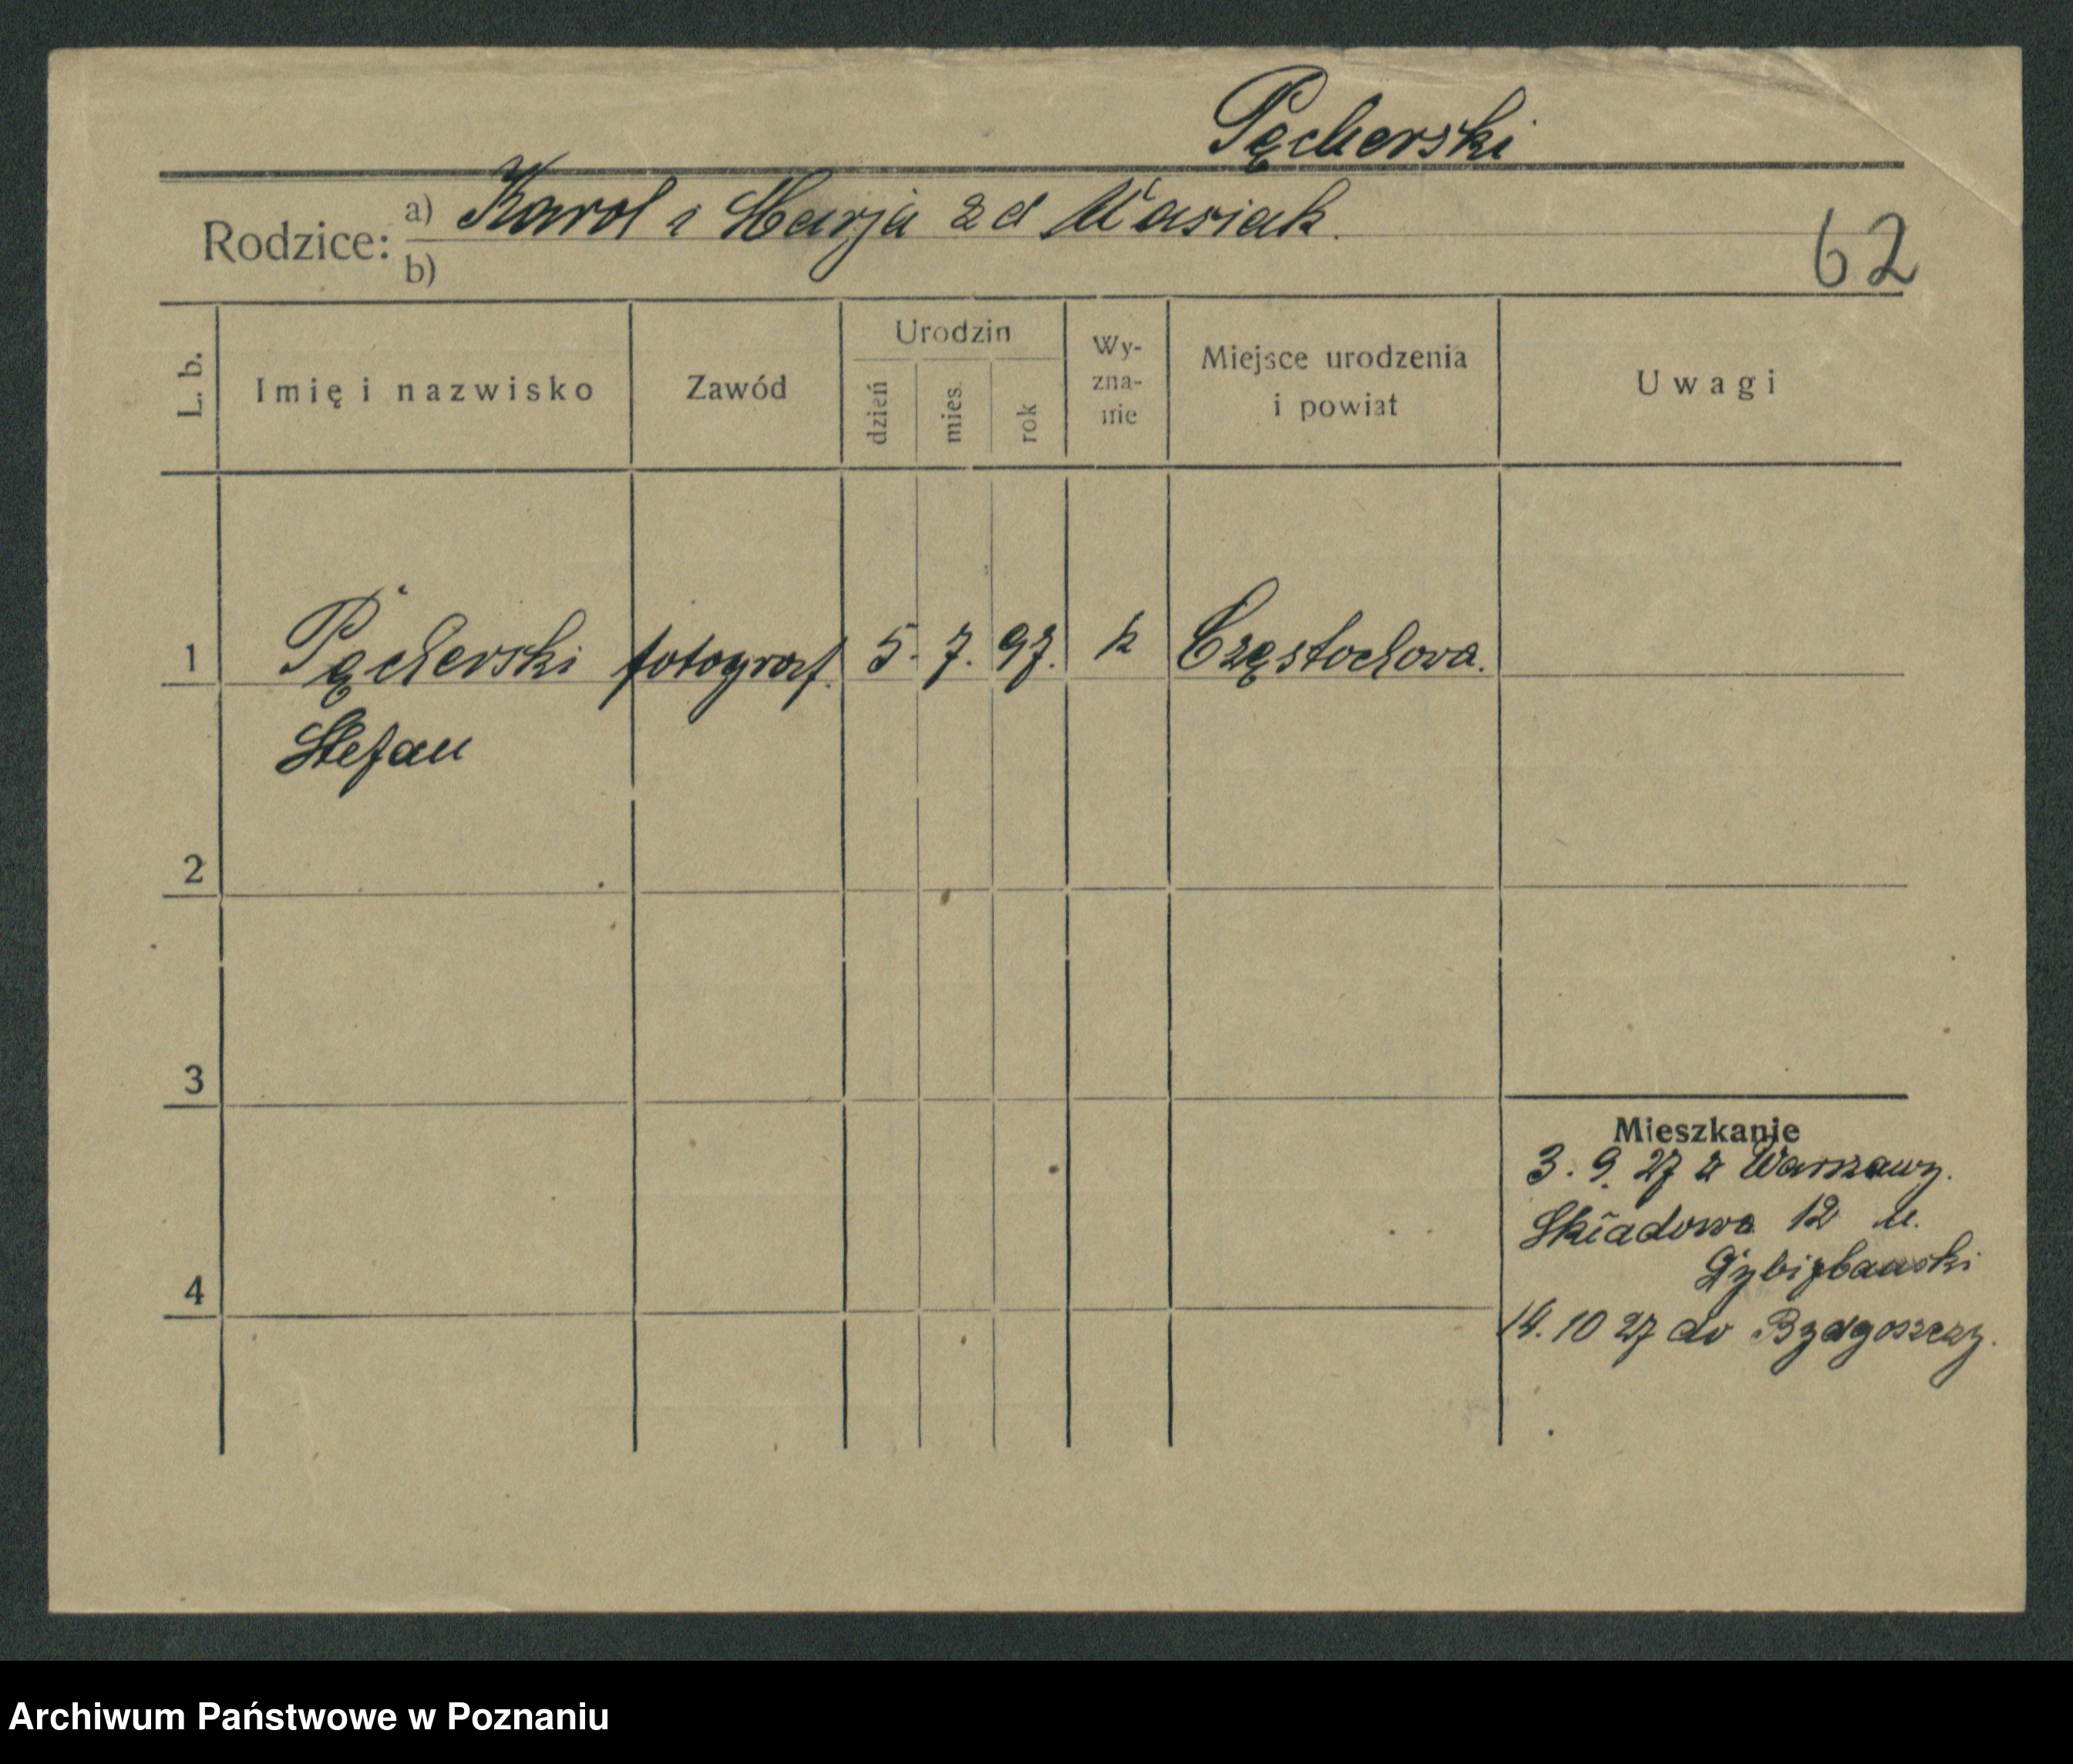 Pęcherski
Rodzice: a) Karol i Marja zd Wasiak.
b)
62
L. b.
Imię i nazwisko
Zawód
Urodzin
dzień
mies.
rok
Wy-
zna-
nie
Miejsce urodzenia
i powiat
Uwagi
1 Pęcherski fotograf. 5. 7. 97. k Częstochowa.
Stefan
2
3
4
Mieszkanie
3. 9. 27 z Warszawy.
Składowa 12 u.
14. 10 27 do Bydgoszczy.
Archiwum Państwowe w Poznaniu